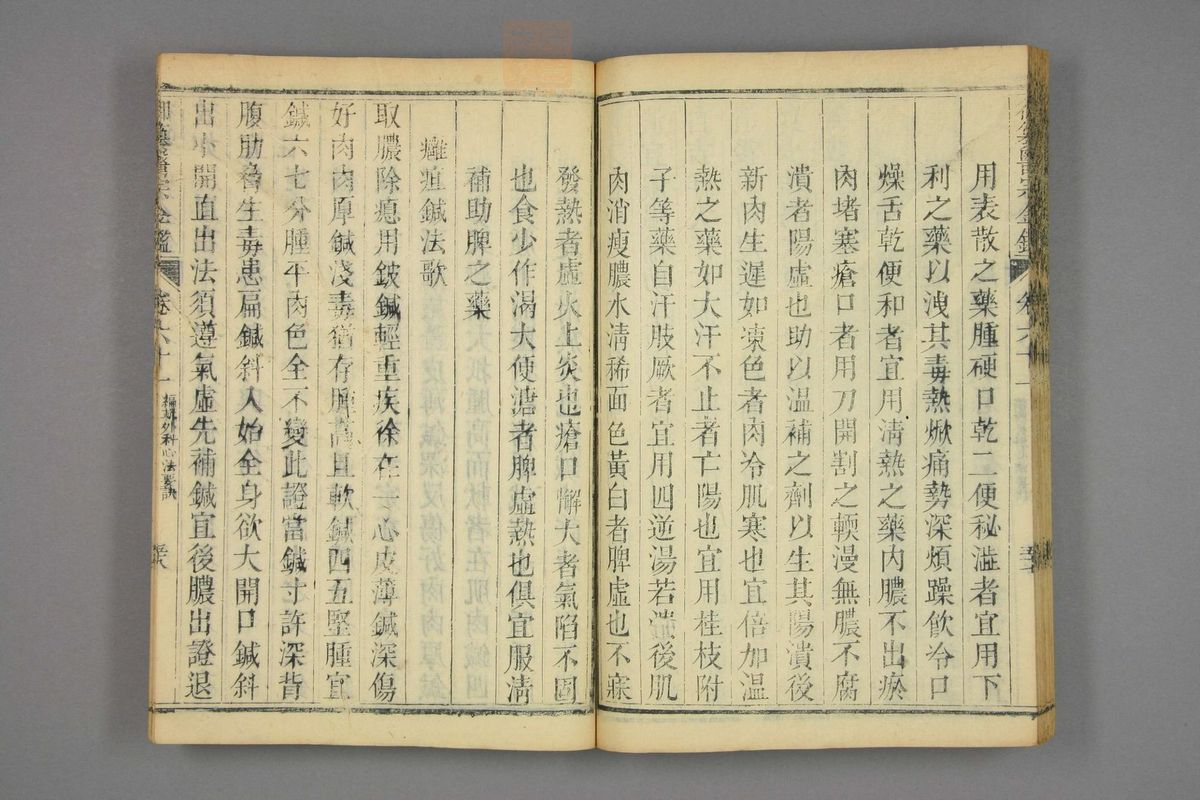 用表散之藥腫硬口乾二便秘澁者宜用下
利之藥以洩其毒熱焮痛勢深煩躁飲冷口
燥舌乾便和者宜用清熱之藥内膿不出瘀
肉堵塞瘡口者用刀開割之輭漫無膿不腐
潰者陽虛也助以温補之劑以生其陽潰後
新肉生遲如凍色者肉冷肌寒也宜倍加温
熱之藥如大汗不止者亡陽也宜用桂枝附
子等藥自汗肢厥者宜用四逆湯若潰後肌
肉消瘦膿水清稀面色黃白者脾虛也不寐
發熱者虛火上炎也瘡口懈大者氣陷不固
也食少作渴大便溏者脾虛熱也俱宜服清
補助脾之藥
癰疽鍼法歌
取膿除瘜用鈹鍼輕重疾徐在一心皮薄鍼深傷
好肉肉厚鍼淺毒猶存腫高且軟鍼四五堅腫宜
鍼六七分腫平肉色全不變此證當鍼寸許深背
腹肋脅生毒患扁鍼斜入始全身欲大開口鍼斜
出小開直出法須遵氣虛先補鍼宜後膿出證退
御纂醫宗金鑑
卷六十一
編輯外科心法要訣